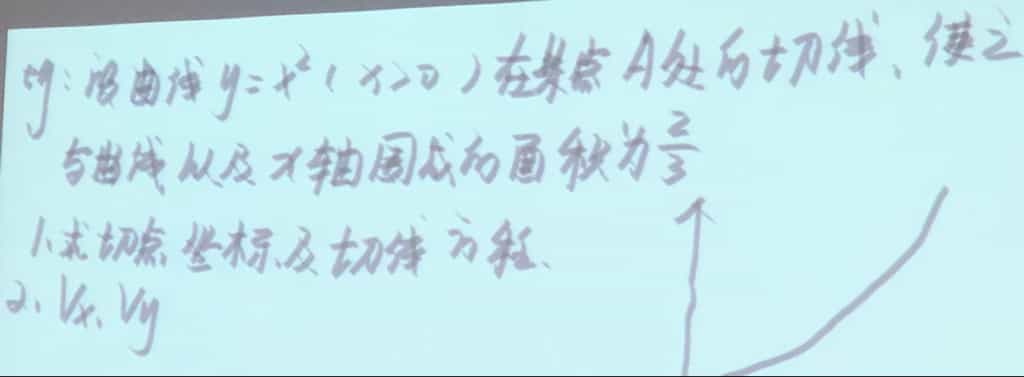 例:设曲线y=x²(x>0)在某点A处的切线、使之
与曲线以及x轴围成的面积为2/3
1、求切点坐标及切线方程、
2、Vx、Vy